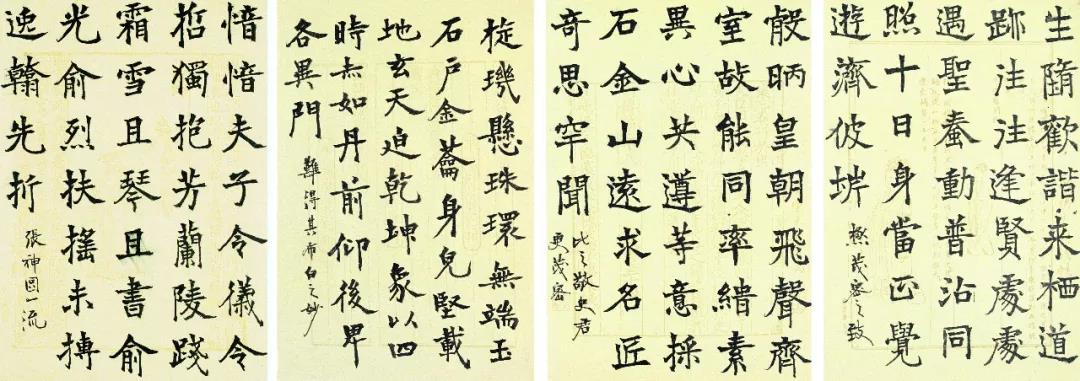 生隋歡諧来栖道
跡注注逢賢處處
遇聖蚕動普沾同
照十日身當正覺
遊濟彼
極茂密之致
皇朝飛聲齊
室故能同率緒素
異心共遵等意採
石金山遠求名匠
奇思罕聞
比之敬史君
更茂密
旋璣懸珠環無端玉
石户金身皃堅載
地玄天迫乾坤象以四
時杰如丹前仰後卑
各異門
難得其布白之妙
愔愔夫子令儀令
哲獨抱芳蘭陵踐
霜雪且琴且書俞
光俞烈扶摇未摶
逸翰先折
張神囧一流